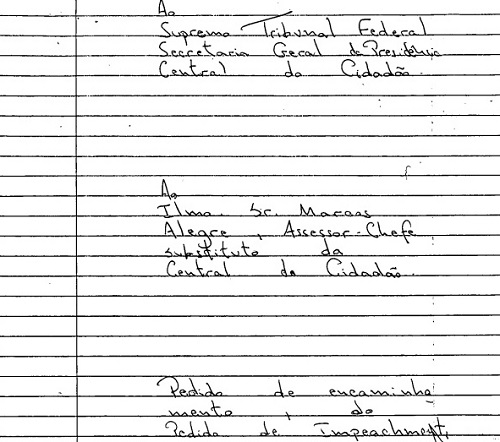 Ao
Supremo Tribunal Federal
Secretaria Geral da Presidência
Central do Cidadão.
Ao
Ilmo. Sr. Marcos
Alegre, Assessor-Chefe
substituto da
Central do Cidadão.
Pedido de encaminha
mento, do
Pedido de Impeachment